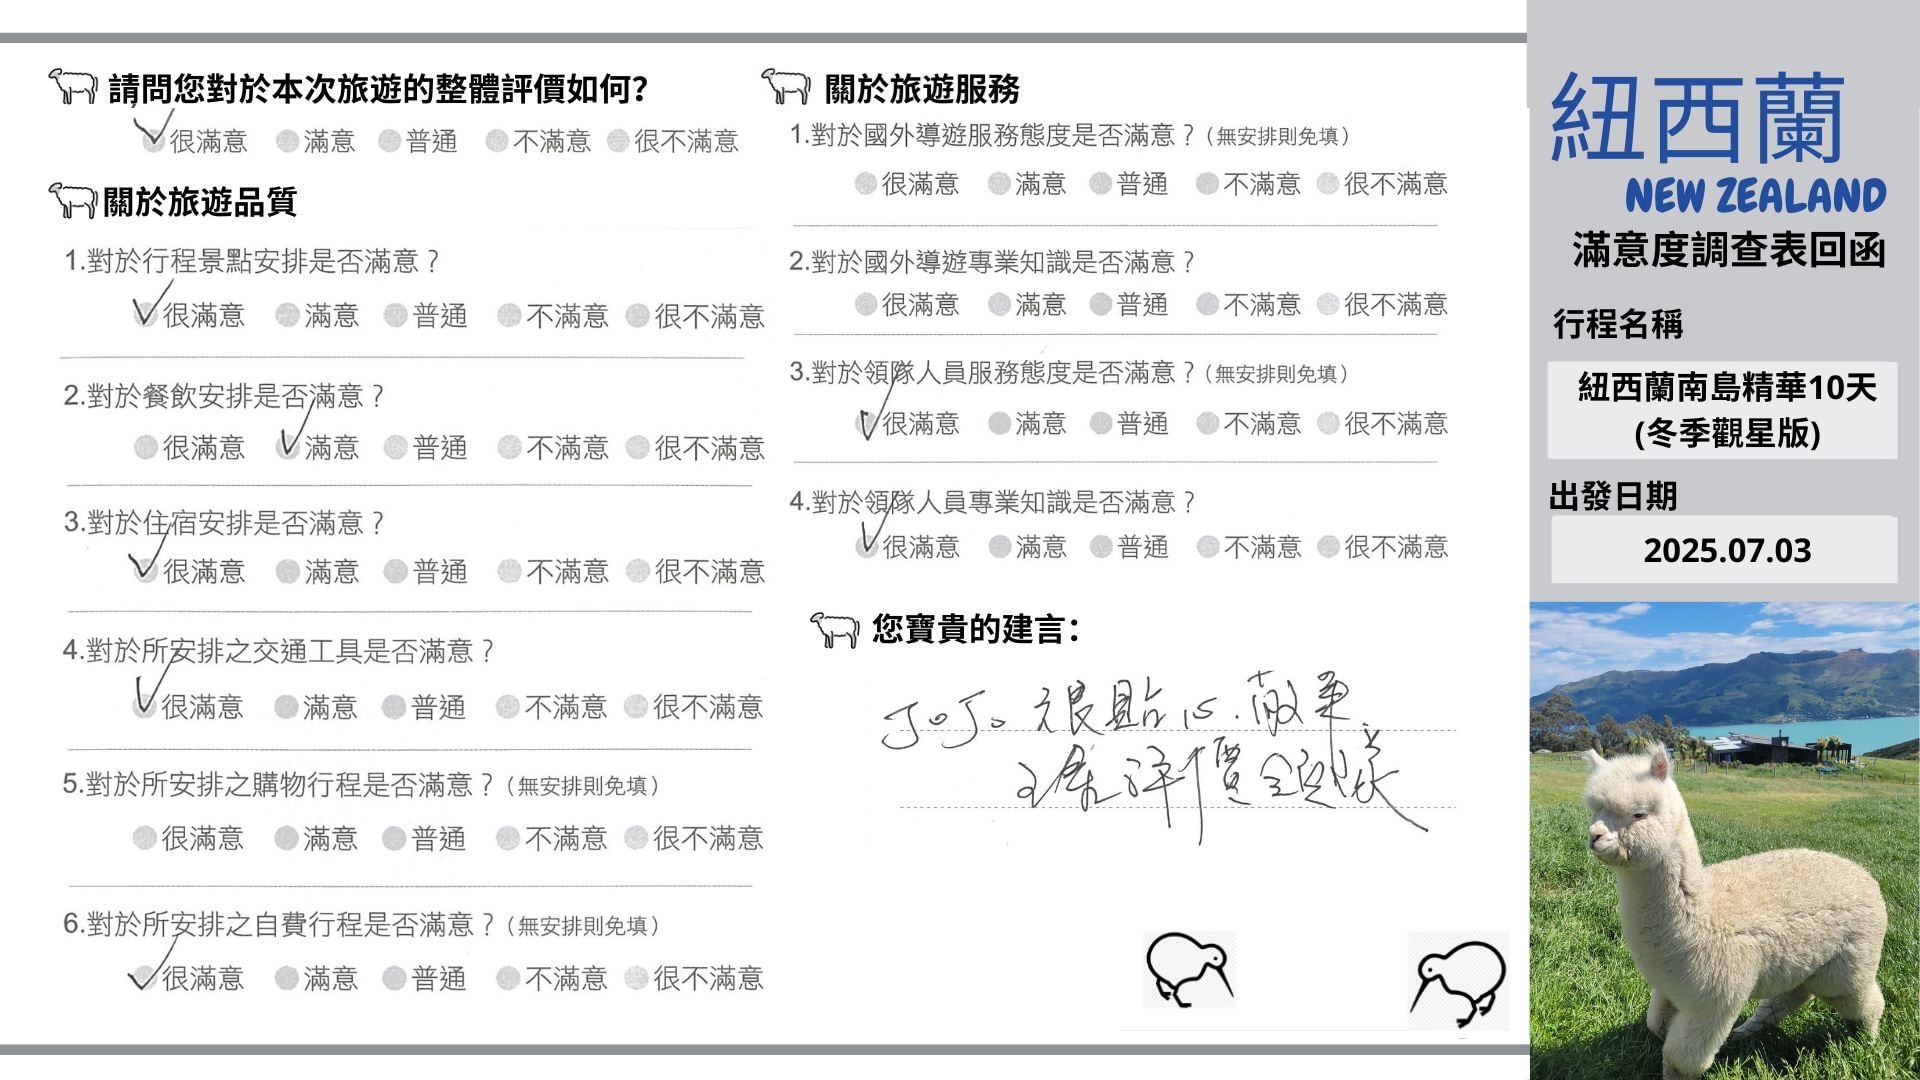 請問您對於本次旅遊的整體評價如何?
很滿意 滿意 普通 不滿意 很不滿意
關於旅遊品質
1.對於行程景點安排是否滿意?
很滿意 滿意 普通 不滿意 很不滿意
2.對於餐飲安排是否滿意?
很滿意 滿意 普通 不滿意 很不滿意
3.對於住宿安排是否滿意?
很滿意 滿意 普通 不滿意 很不滿意
4.對於所安排之交通工具是否滿意?
很滿意 滿意 普通 不滿意 很不滿意
5.對於所安排之購物行程是否滿意?(無安排則免填)
很滿意 滿意 普通 不滿意 很不滿意
6.對於所安排之自費行程是否滿意?(無安排則免填)
很滿意 滿意 普通 不滿意 很不滿意
關於旅遊服務
1.對於國外導遊服務態度是否滿意?(無安排則免填)
很滿意 滿意 普通 不滿意 很不滿意
2.對於國外導遊專業知識是否滿意?
很滿意 滿意 普通 不滿意 很不滿意
3.對於領隊人員服務態度是否滿意?(無安排則免填)
很滿意 滿意 普通 不滿意 很不滿意
4.對於領隊人員專業知識是否滿意?
很滿意 滿意 普通 不滿意 很不滿意
您寶貴的建言:
JoJo 很貼心.敬業.
評價領隊
紐西蘭
NEW ZEALAND
滿意度調查表回函
行程名稱
紐西蘭南島精華10天
(冬季觀星版)
出發日期
2025.07.03